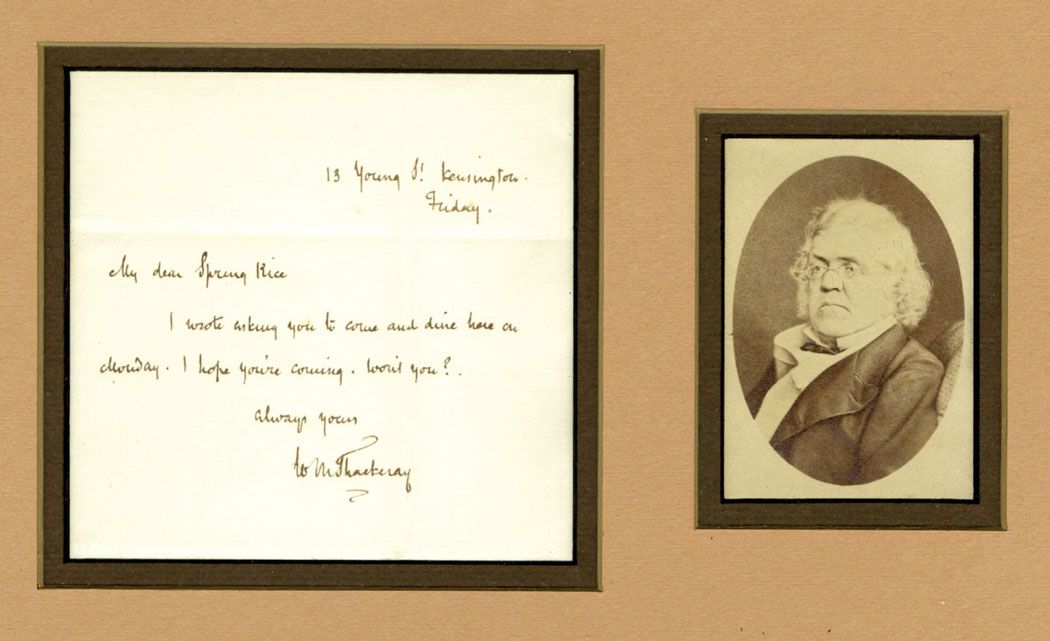 13 Young St. Kensington.
Friday.
My dear Spring Rice
I wrote asking you to come and dine here on
Monday. I hope you're coming. Won't you?.
Always yours
W M Thackeray